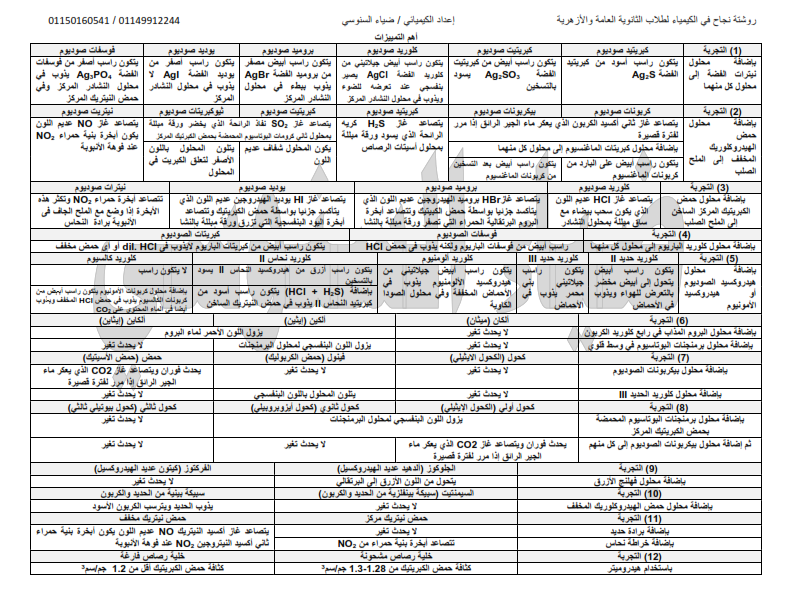 روشتة نجاح في الكيمياء لطلاب الثانوية العامة والأزهرية
إعداد الكيميائي / ضياء السنوسي
01149912244 / 01150160541
أهم التمييزات
(1) التجربة
كبريتيد صوديوم
كبريتيت صوديوم
كلوريد صوديوم
بروميد صوديوم
يوديد صوديوم
فوسفات صوديوم
بإضافة محلول نيترات الفضة إلى محلول كل منهما
يتكون راسب أسود من كبريتيد الفضة Ag₂S
يتكون راسب أبيض من كبريتيت الفضة Ag₂SO₃ يسود بالتسخين
يتكون راسب أبيض جيلاتيني من كلوريد الفضة AgCl يصير بنفسجي عند تعرضه للضوء ويذوب في محلول النشادر المركز
يتكون راسب أبيض مصفر من بروميد الفضة AgBr يذوب ببطء في محلول النشادر المركز
يتكون راسب أصفر من يوديد الفضة AgI لا يذوب في محلول النشادر المركز
يتكون راسب أصفر من فوسفات الفضة Ag₃PO₄ يذوب في محلول النشادر المركز وفي حمض النيتريك المركز
(2) التجربة
كربونات صوديوم
بيكربونات صوديوم
كبريتيد صوديوم
كبريتيت صوديوم
ثيوكبريتات صوديوم
نيتريت صوديوم
بإضافة محلول حمض الهيدروكلوريك المخفف إلى الملح الصلب
يتصاعد غاز ثاني أكسيد الكربون الذي يعكر ماء الجير الرائق إذا مرر لفترة قصيرة
بإضافة محلول كبريتات الماغنسيوم إلى محلول كل منهما
يتكون راسب أبيض على البارد من كربونات الماغنسيوم
يتكون راسب أبيض بعد التسخين من كربونات الماغنسيوم
يتصاعد غاز H₂S كريه الرائحة الذي يسود ورقة مبللة بمحلول أسيتات الرصاص
يتصاعد غاز SO₂ نفاذ الرائحة الذي يخضر ورقة مبللة بمحلول ثاني كرومات البوتاسيوم المحمضة بحمض الكبريتيك المركز
يكون المحلول شفاف عديم اللون
يتلون المحلول باللون الأصفر لتعلق الكبريت في المحلول
يتصاعد غاز NO عديم اللون يكون أبخرة بنية حمراء NO₂ عند فوهة الأنبوبة
(3) التجربة
كلوريد صوديوم
بروميد صوديوم
يوديد صوديوم
نيترات صوديوم
بإضافة محلول حمض الكبريتيك المركز الساخن إلى الملح الصلب
يتصاعد غاز HCl عديم اللون الذي يكون سحب بيضاء مع ساق مبللة بمحلول النشادر
يتصاعد غاز HBr بروميد الهيدروجين عديم اللون الذي يتأكسد جزئيا بواسطة حمض الكبيتيك وتتصاعد البروم البرتقالية الحمراء التي تصفر ورقة مبللة بالنشا
يتصاعد غاز HI يوديد الهيدروجين عديم اللون الذي يتأكسد جزئيا بواسطة حمض الكبريتيك وتتصاعد أبخرة اليود البنفسجية التي تزرق ورقة مبللة بالنشا
تتصاعد أبخرة حمراء NO₂ وتكثر هذه الأبخرة إذا وضع مع الملح الجاف فى الأنبوبة برادة النحاس
(4) التجربة
فوسفات الصوديوم
كبريتات الصوديوم
بإضافة محلول كلوريد الباريوم إلى محلول كل منهما
راسب أبيض من فوسفات الباريوم ولكنه يذوب في حمض HCl
يتكون راسب أبيض من كبريتات الباريوم لايذوب في dil. HCl أو أى حمض مخفف
(5) التجربة
كلوريد حديد II
كلوريد حديد III
كلوريد الومنيوم
كلوريد نحاس II
كلوريد كالسيوم
بإضافة محلول هيدروكسيد الصوديوم أو هيدروكسيد الأمونيوم
يتكون راسب أبيض يتحول إلى أبيض مخضر بالتعرض للهواء ويذوب في الأحماض
يتكون راسب جيلاتيني بني محمر يذوب في الأحماض
يتكون راسب أبيض جيلاتيني من هيدروكسيد الألومنيوم يذوب في الأحماض المخففة وفي محلول الصودا الكاوية
يتكون راسب أزرق من هيدروكسيد النحاس II يسود بالتسخين
بإضافة (HCl + H₂S) يتكون راسب أسود من كبريتيد النحاس II يذوب في حمض النيتريك الساخن
لا يتكون راسب
بإضافة محلول كربونات الأمونيوم يتكون راسب أبيض من كربونات الكالسيوم يذوب في حمض HCl المخفف ويذوب أيضا فى الماء المحتوى على CO₂
(6) التجربة
ألكان (ميثان)
ألكين (إيثين)
ألكاين (إيثاين)
بإضافة محلول البروم المذاب في رابع كلوريد الكربون
لا يحدث تغير
يزول اللون الأحمر لماء البروم
بإضافة محلول برمنجنات البوتاسيوم في وسط قلوي
لا يحدث تغير
يزول اللون البنفسجي لمحلول البرمنجنات
لا يحدث تغير
(7) التجربة
كحول (الكحول الايثيلي)
فينول (حمض الكربوليك)
حمض (حمض الأسيتيك)
بإضافة محلول بيكربونات الصوديوم
لا يحدث تغير
لا يحدث تغير
يحدث فوران ويتصاعد غاز CO2 الذي يعكر ماء الجير الرائق إذا مرر لفترة قصيرة
بإضافة محلول كلوريد الحديد III
لا يحدث تغير
يتلون المحلول باللون البنفسجي
لا يحدث تغير
(8) التجربة
كحول أولي (الكحول الإيثيلي)
كحول ثانوي (كحول ايزوبروبيلي)
كحول ثالثي (كحول بيوتيلي ثالثي)
بإضافة محلول برمنجنات البوتاسيوم المحمضة بحمض الكبريتيك المركز
يزول اللون البنفسجي لمحلول البرمنجنات
لا يحدث تغير
ثم إضافة محلول بيكربونات الصوديوم إلى كل منهم
يحدث فوران ويتصاعد غاز CO2 الذي يعكر ماء الجير الرائق إذا مرر لفترة قصيرة
لا يحدث تغير
لا يحدث تغير
(9) التجربة
الجلوكوز (ألدهيد عديد الهيدروكسيل)
الفركتوز (كيتون عديد الهيدروكسيل)
بإضافة محلول فهلنج الأزرق
يتحول من اللون الأزرق إلى البرتقالي
لا يحدث تغير
(10) التجربة
السيمنتيت (سبيكة بينفلزية من الحديد والكربون)
سبيكة بينية من الحديد والكربون
بإضافة محلول حمض الهيدروكلوريك المخفف
لا يحدث تغير
يذوب الحديد ويترسب الكربون الأسود
(11) التجربة
حمض نيتريك مركز
حمض نيتريك مخفف
بإضافة برادة حديد
لا يحدث تغير
يتصاعد غاز أكسيد النيتريك NO عديم اللون يكون أبخرة بنية حمراء ثاني أكسيد النيتروجين NO₂ عند فوهة الأنبوبة
بإضافة خراطة نحاس
تتصاعد أبخرة بنية حمراء من NO₂
(12) التجربة
خلية رصاص مشحونة
خلية رصاص فارغة
باستخدام هيدروميتر
كثافة حمض الكبريتيك من 1.28-1.3 جم/سم³
كثافة حمض الكبريتيك أقل من 1.2 جم/سم³